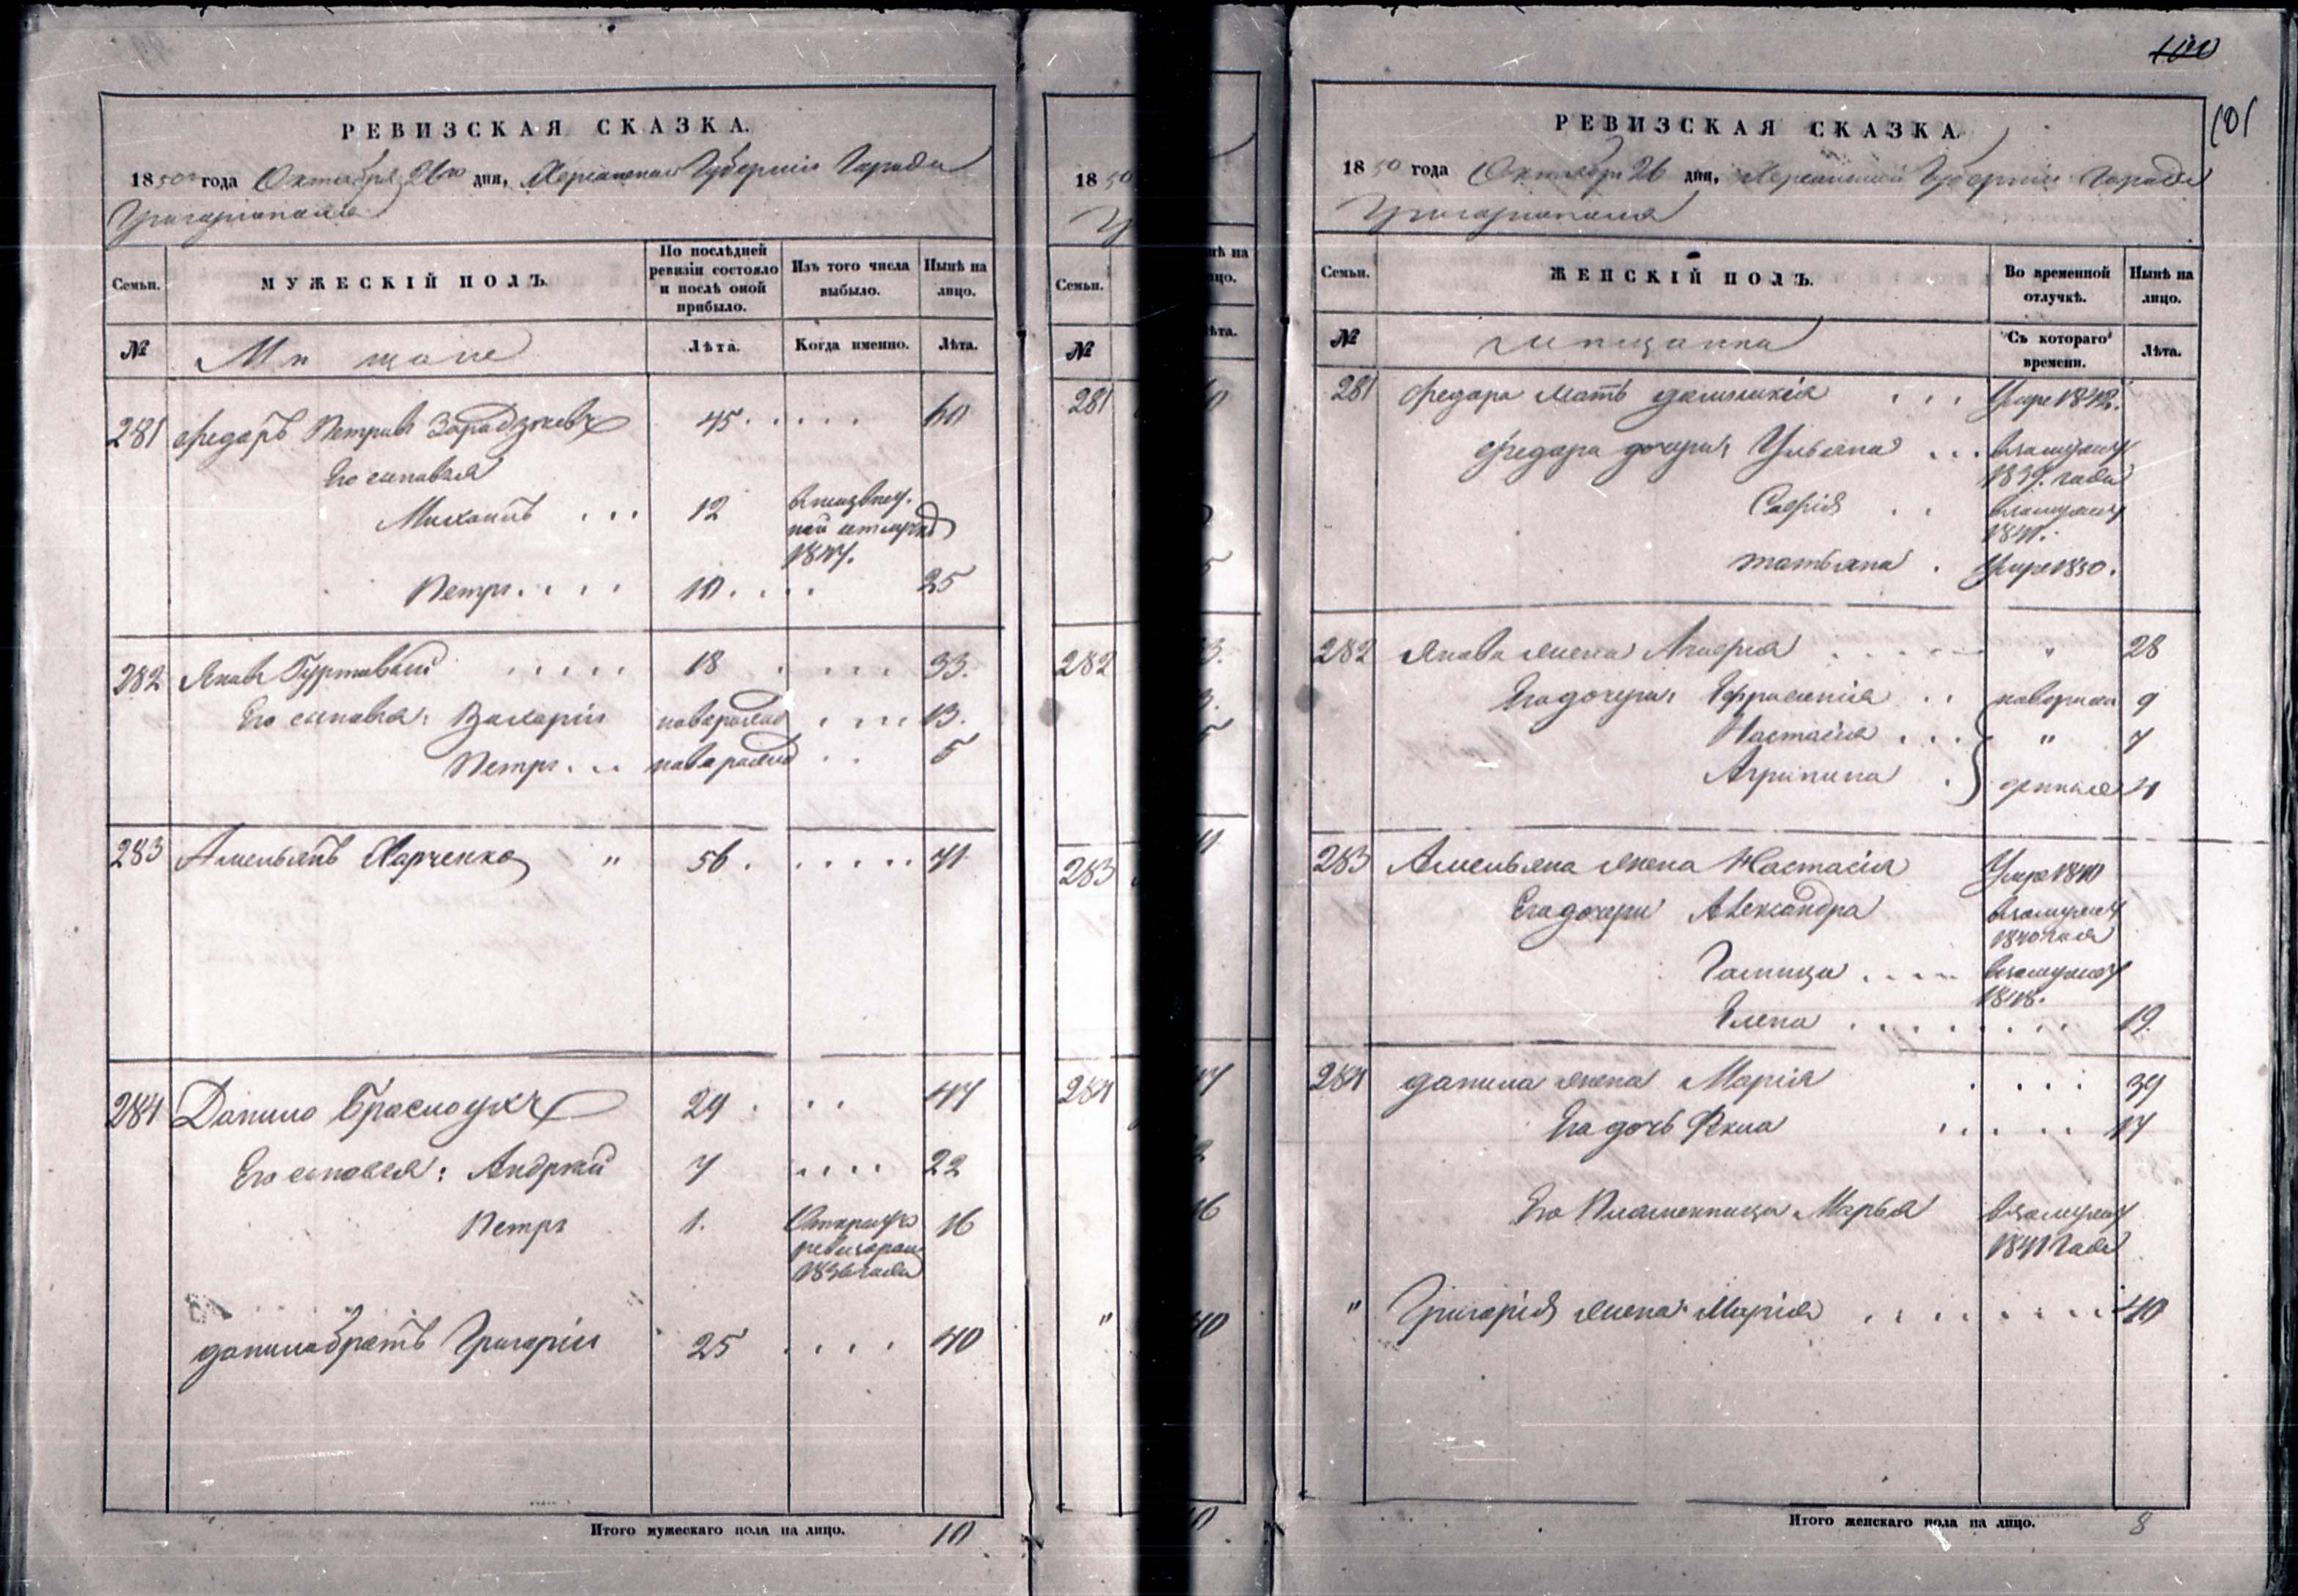 РЕВИЗСКАЯ СКАЗКА.
1850 года Октября 26го дня, Херсонской Губерніи Города
Григоріополя
Семьи.
МУЖЕСКІЙ ПОЛЪ.
По послѣдней ревизіи состояло и послѣ оной прибыло.
Изъ того числа выбыло.
Нынѣ на лицо.
№ Мѣщане Лѣта. Когда именно. Лѣта.
281 Федоръ Петровъ 45 60
Его сыновья
Михаилъ 12
отлучкѣ
1847.
Петръ 10 25
282 Яковъ Буртовый 18 33.
Его сыновья: Валерій новорожд 13.
Петръ новорожд 5
283 Амельянъ Харченко " 56 71
284 Данило 29 44
Его сыновья: Андрей 7 22
Петръ 1. 16
1836 года
Данила братъ Григорій 25 40
Итого мужескаго пола на лицо. 10
18 50
Семьи.
№
281
282
283
284
"
100
101
РЕВИЗСКАЯ СКАЗКА.
1850 года Октября 26 дня, Херсонской Губерніи Города
Григоріополя
Семьи.
ЖЕНСКІЙ ПОЛЪ.
Во временной отлучкѣ.
Нынѣ на лицо.
№ Мѣщанки Съ котораго времени. Лѣта.
281 Федора мать
Федора дочери Ульяна взамужст
1839. года
Софія взамужст
1841.
Татьяна Умре 1850.
282 Якова жена Агафья " 28
Его дочери Ефросинія новорож 9
Настасія " 7
Агрипина денныя 4
283 Амельяна жена Настасія Умре 1840
Его дочери Александра взамужст
1840 года
взамужст
1848.
Елена 19.
284 Данила жена Марія 39
Его дочь Фекла 14
Его Племенница Марья взамужст
1841 года
" Григорія жена Марія 40
Итого женскаго пола на лицо. 8